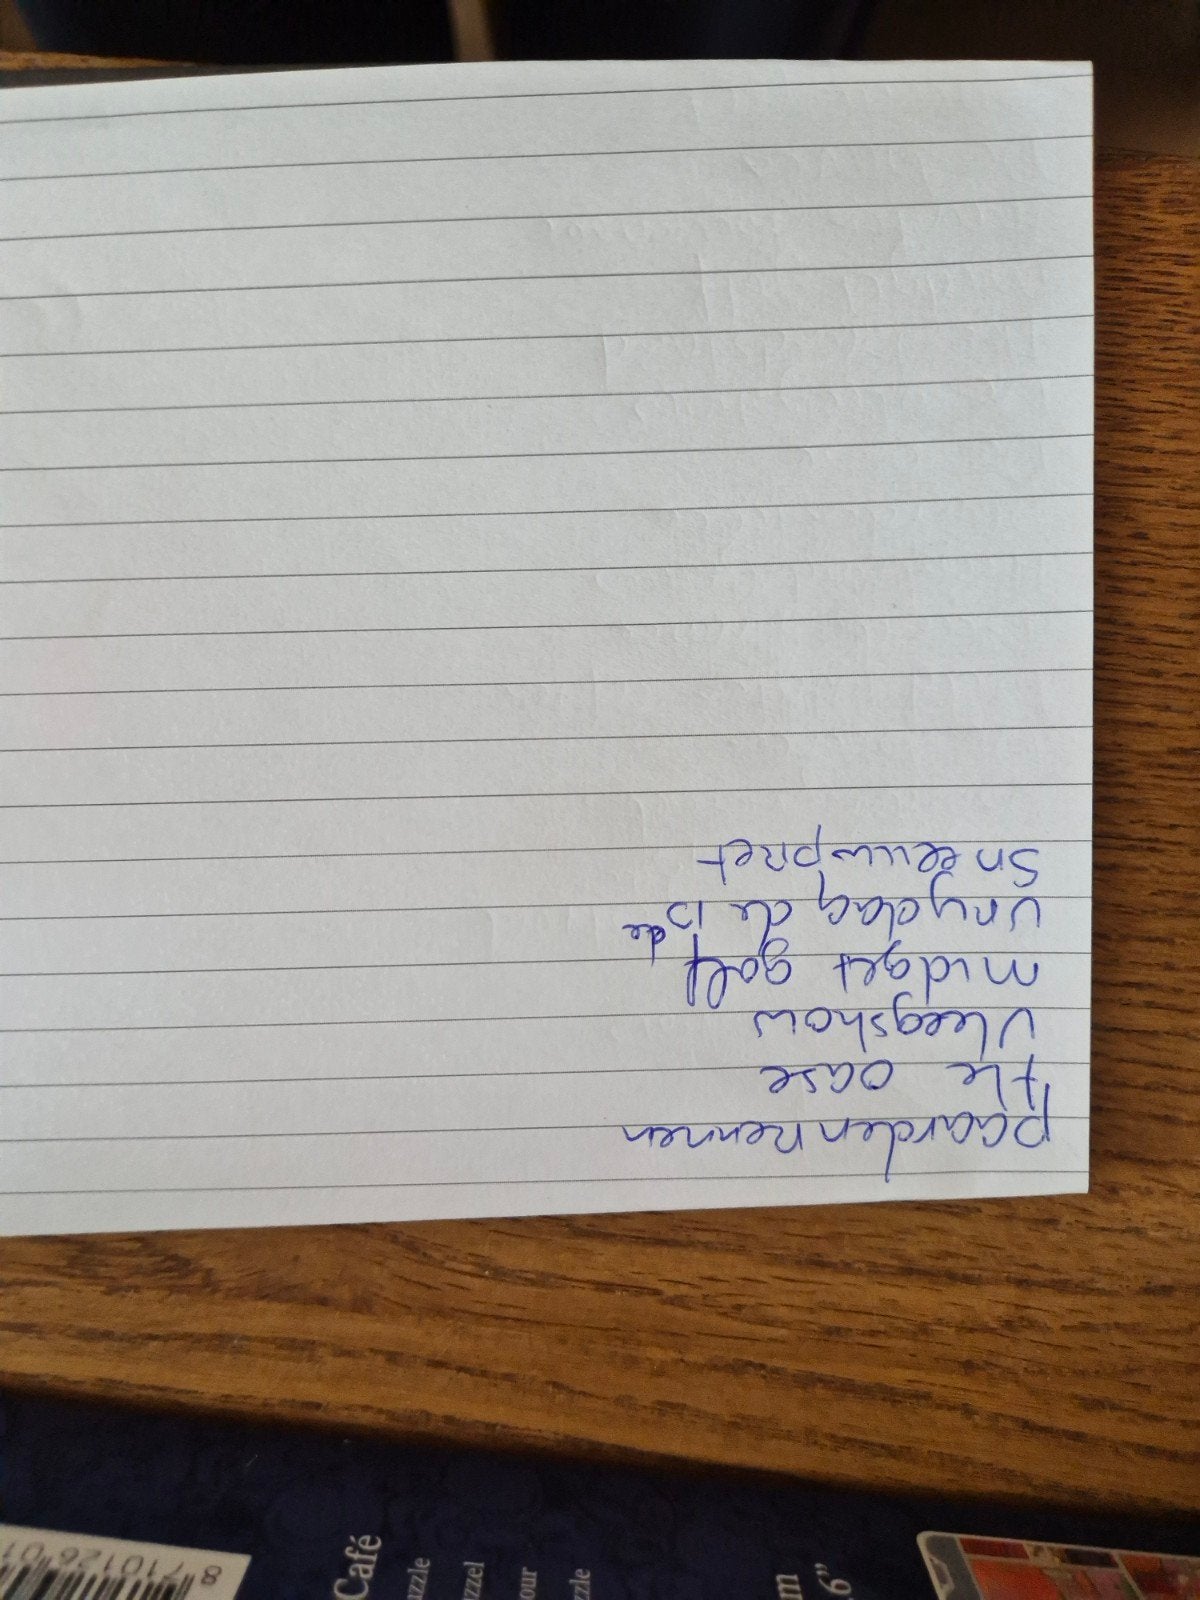 paardenrennen
the oase
vleegshow
midget golf
vrydag de 13 de
Sneeuwpret
Café
uzzle
uzzel
our
zzle
m
6"